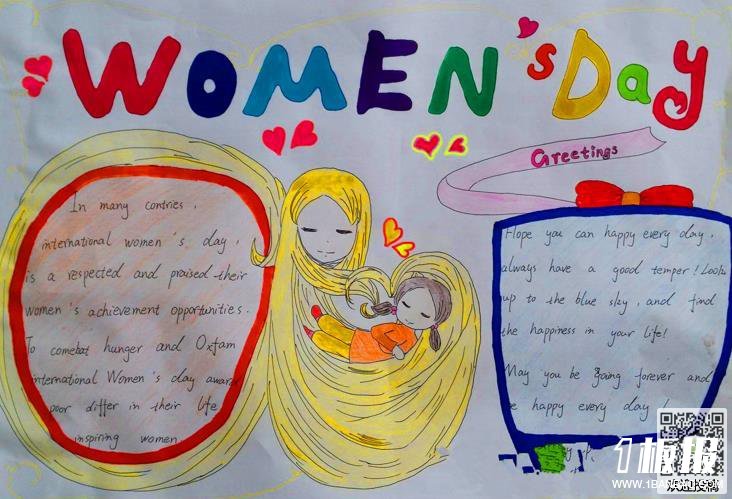 WOMEN's Day
Greetings
In many contries,
international women's day,
is a respected and praised their
women's achievement opportunities.
To comebat hunger and Oxfam
international Women's day award
poor differ in their life
inspiring women
Hope you can happy every day,
always have a good temper! Look
up to the blue sky, and find
the happiness in your life!
May you be going forever and
be happy every day!
1板报
WWW.1BANBAO.COM
欢迎投稿